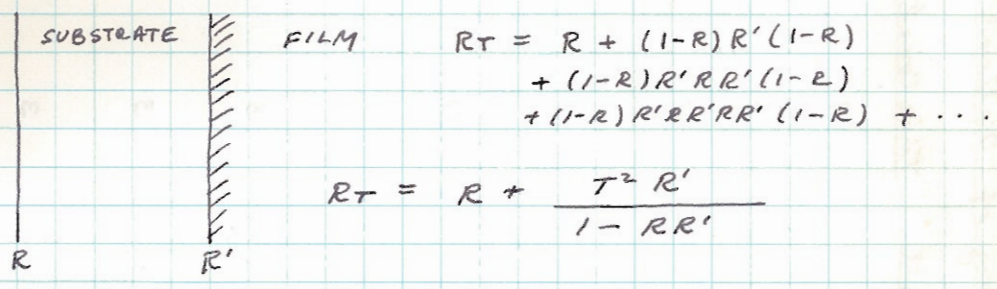 SUBSTRATE FILM RT = R + (1-R) R' (1-R)
+ (1-R) R' R R' (1-R)
+ (1-R) R' R R' R R' (1-R) + ...
RT = R + T² R' / 1 - RR'
R R'